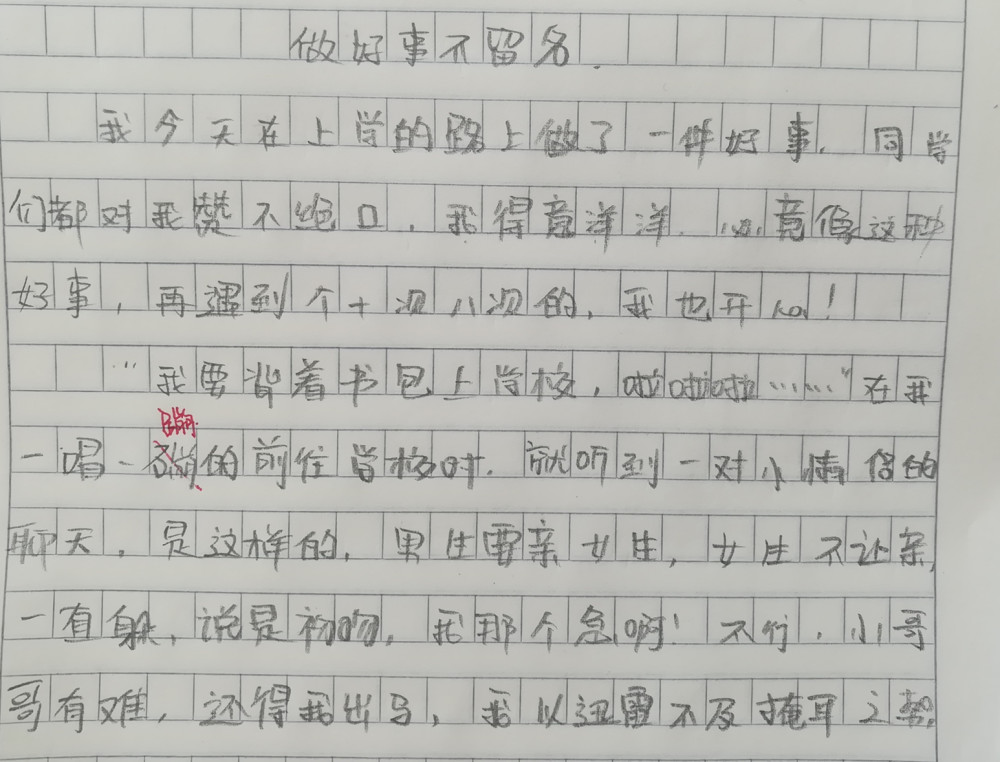 做好事不留名.
我今天在上学的路上做了一件好事.同学
们都对我赞不绝口,我得意洋洋.必竟像这种
好事,再遇到个十次八次的,我也开心!
"我要背着书包上学校,啦啦啦……"在我
蹦
一唱一蹦的前往学校时.就听到一对小情侣的
聊天,是这样的,男生要亲女生,女生不让亲,
一直躲,说是初吻,我那个急啊!不行,小哥
哥有难,还得我出马,我以迅雷不及掩耳之势,